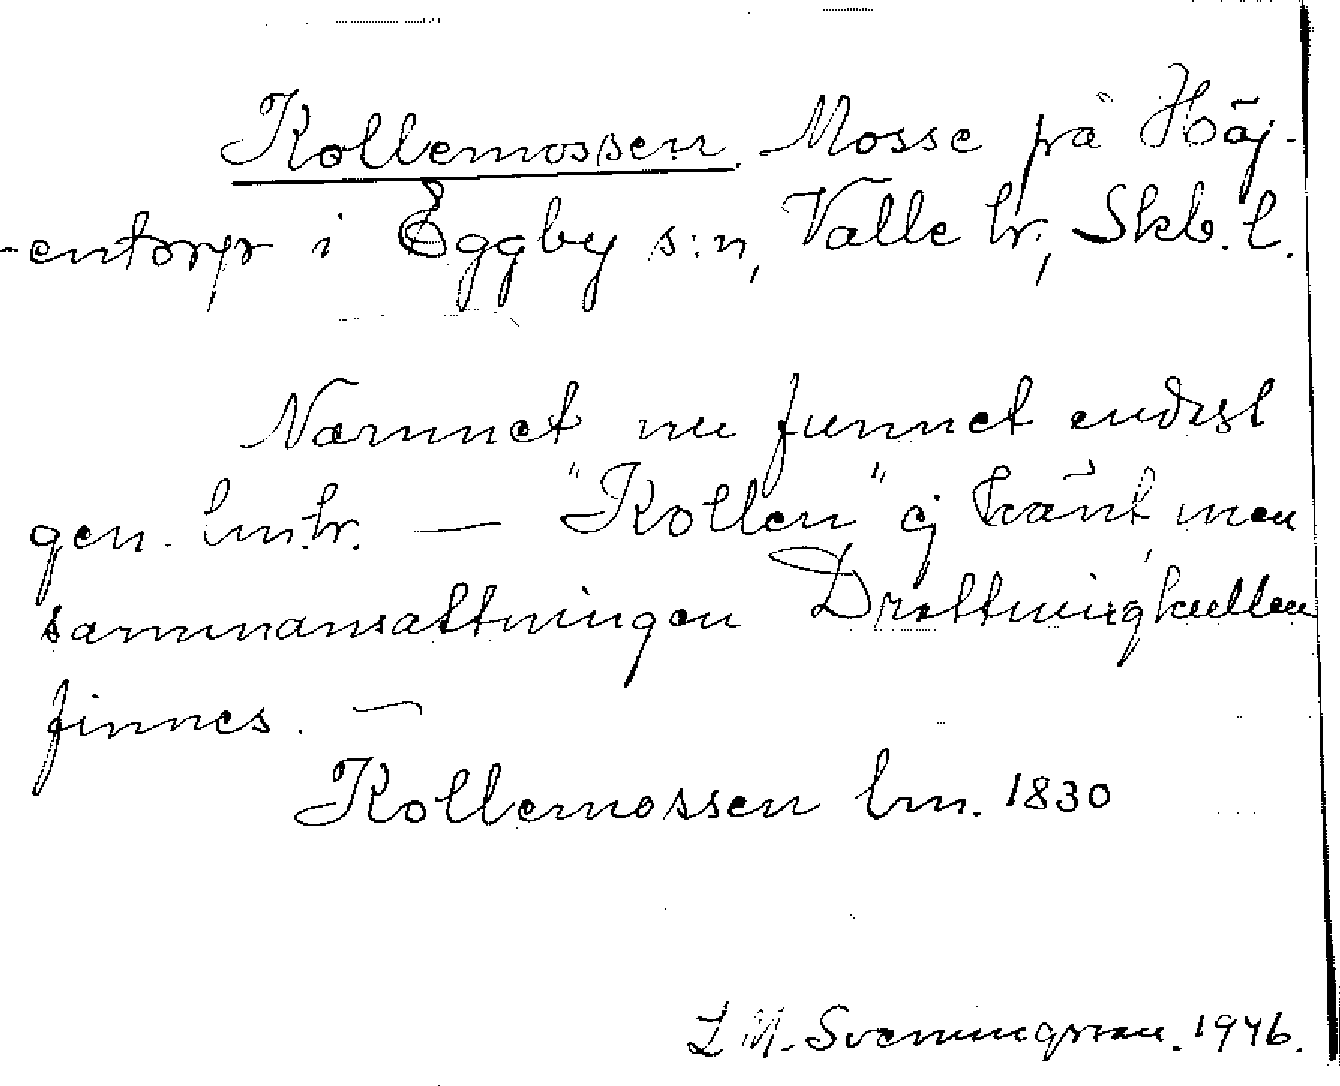 Kollemossen. Mosse på Höj-
-entorp i Eggby s:n, Valle hr, Skb. l.
Namnet nu funnet endast
gen. lm.hr. — "Kollen" ej känt, men
sammansattningen Drottningkullen
finnes. —
Kollemossen lm. 1830
L M. Svenungsson. 1946.